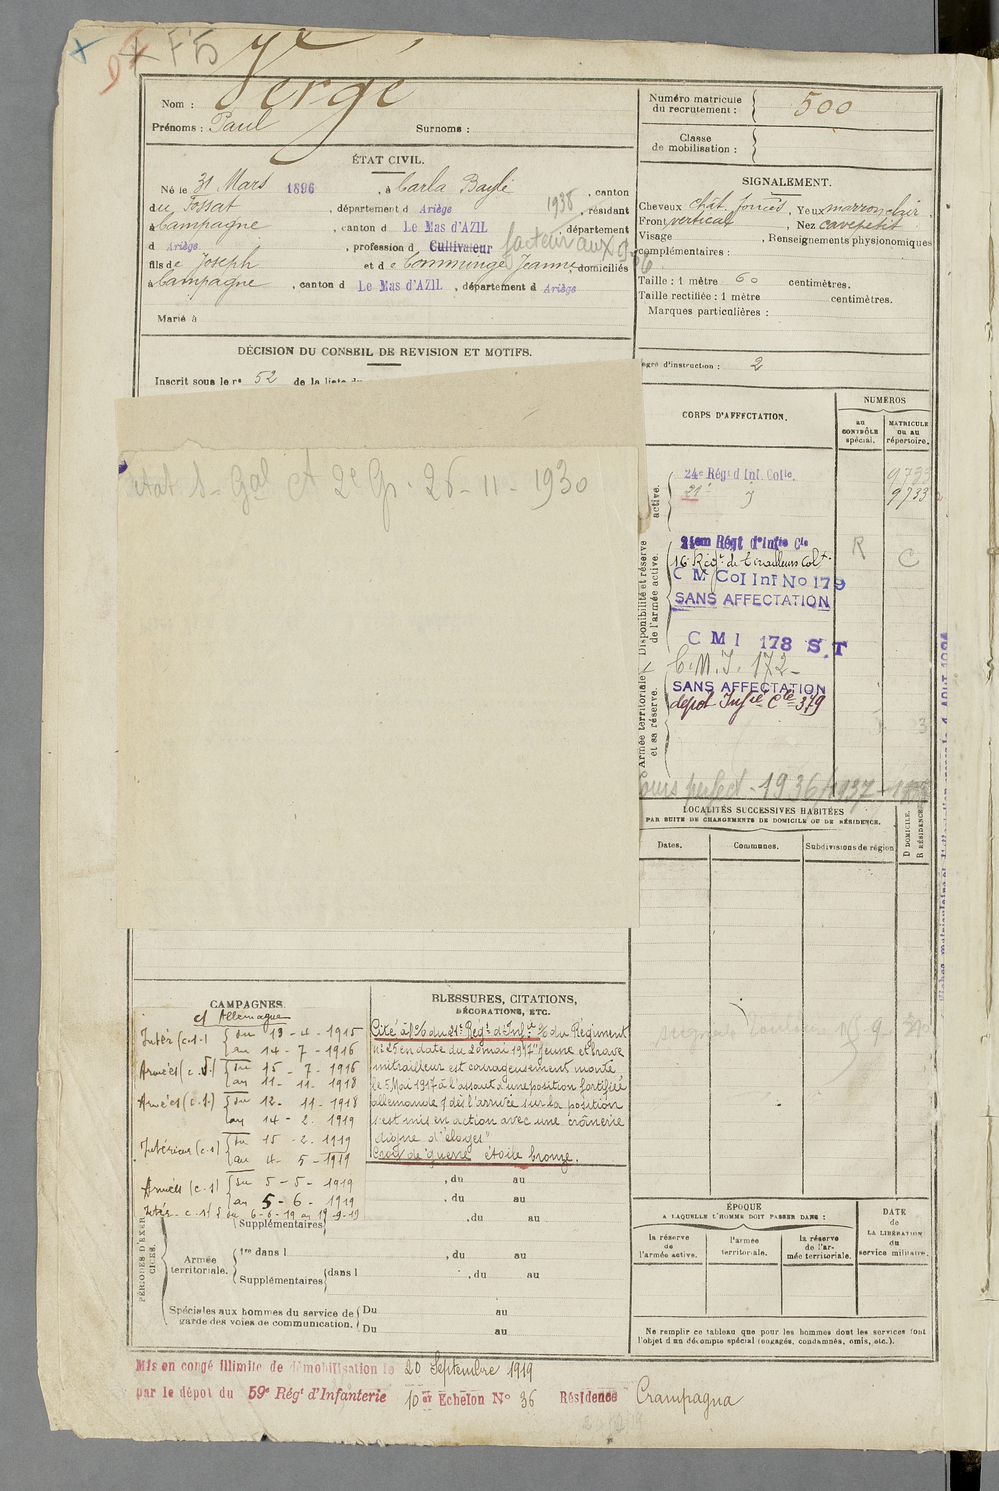 F 5
Nom : Vergé
Prénoms : Paul Surnoms :
Numéro matricule du recrutement : 500
Classe de mobilisation :
ÉTAT CIVIL.
Né le 31 Mars 1896, à Carla Bayle, canton
du Fossat, département d Ariège 1938, résidant
à Campagne, canton d Le Mas d'AZIL, département
d Ariège, profession d Cultivateur facteur aux
fils de Joseph et de Commenge Jeanne, domiciliés
à Campagne, canton d Le Mas d'AZIL, département d Ariège
Marié à
SIGNALEMENT.
Cheveux chât. foncés, Yeux marron clair
Front vertical, Nez cave petit
Visage, Renseignements physionomiques
complémentaires :
Taille : 1 mètre 60 centimètres.
Taille rectifiée : 1 mètre centimètres.
Marques particulières :
Degré d'instruction : 2
DÉCISION DU CONSEIL DE REVISION ET MOTIFS.
Inscrit sous le n° 52 de la liste du
Gal 2e Gr. 26-11-1930
CORPS D'AFFECTATION.
NUMÉROS
au CONTRÔLE spécial.
MATRICULE ou au répertoire.
active.
24e Régt d'Inf. Colle.
21e
9733
Disponibilité et réserve de l'armée active.
21em Régt d'Infie Cle
R C
16 Régt de tirailleurs Colx.
C M Col Inf No 179
SANS AFFECTATION
C M I 178 S.T
C.M.I. 172-
SANS AFFECTATION
dépot Infie Cle 379
Armée territoriale et sa réserve.
Cours perfect - 1936/1937 -
LOCALITÉS SUCCESSIVES HABITÉES
PAR SUITE DE CHANGEMENTS DE DOMICILE OU DE RÉSIDENCE.
Dates. Communes. Subdivisions de région
D DOMICILE. R RÉSIDENCE.
CAMPAGNES
c/ Allemagne
Intér (c.s.) du 13 - 4 - 1915
au 14 - 7 - 1916
Armées (c.s.) du 15 - 7 - 1916
au 11 - 11 - 1918
Armées (c.s.) du 12 - 11 - 1918
au 14 - 2 - 1919
Intérieur (c.s) du 15 - 2 - 1919
au 4 - 5 - 1919
Armées (c.s) du 5 - 5 - 1919
au 5 - 6 - 1919
Intér. c.s) du 6-6-19 au 19-9-19
BLESSURES, CITATIONS,
DÉCORATIONS, ETC.
Cité à l'O/ du 21e Régt d'Inft O/ du Régiment
n° 25 en date du 20 mai 1917 "Jeune et brave
mitrailleur est courageusement monté
le 5 Mai 1917 à l'assaut d'une position fortifiée
allemande & dès l'arrivée sur la position
s'est mis en action avec une crânerie
digne d'éloges"
Croix de guerre étoile bronze.
, du au
, du au
PÉRIODES D'EXERCICES.
Supplémentaires , du au
Armée territoriale.
1re dans l , du au
Supplémentaires dans l , du au
Spéciales aux hommes du service de garde des voies de communication.
Du au
Du au
ÉPOQUE
A LAQUELLE L'HOMME DOIT PASSER DANS :
la réserve de l'armée active.
l'armée territoriale.
la réserve de l'armée territoriale.
DATE de LA LIBÉRATION du service militaire.
Ne remplir ce tableau que pour les hommes dont les services font
l'objet d'un décompte spécial (engagés, condamnés, omis, etc.).
Mis en congé illimité de démobilisation le 20 Septembre 1919
par le dépot du 59e Régt d'Infanterie 10er Echelon N° 36 Résidence Crampagna